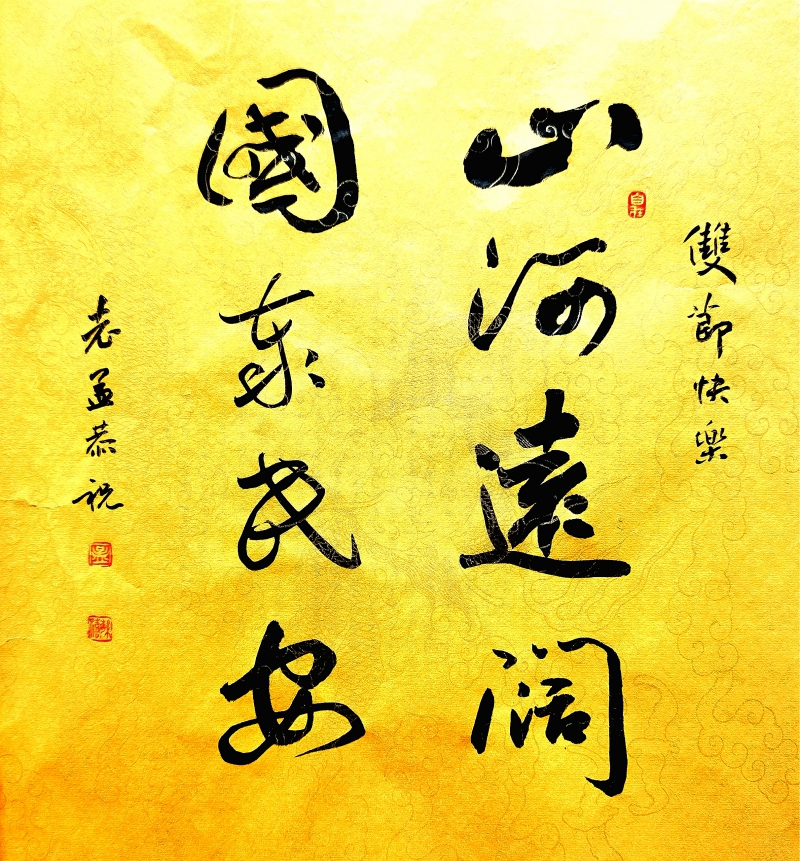 雙節快樂
自在
山河遠闊
國泰民安
老孟恭祝